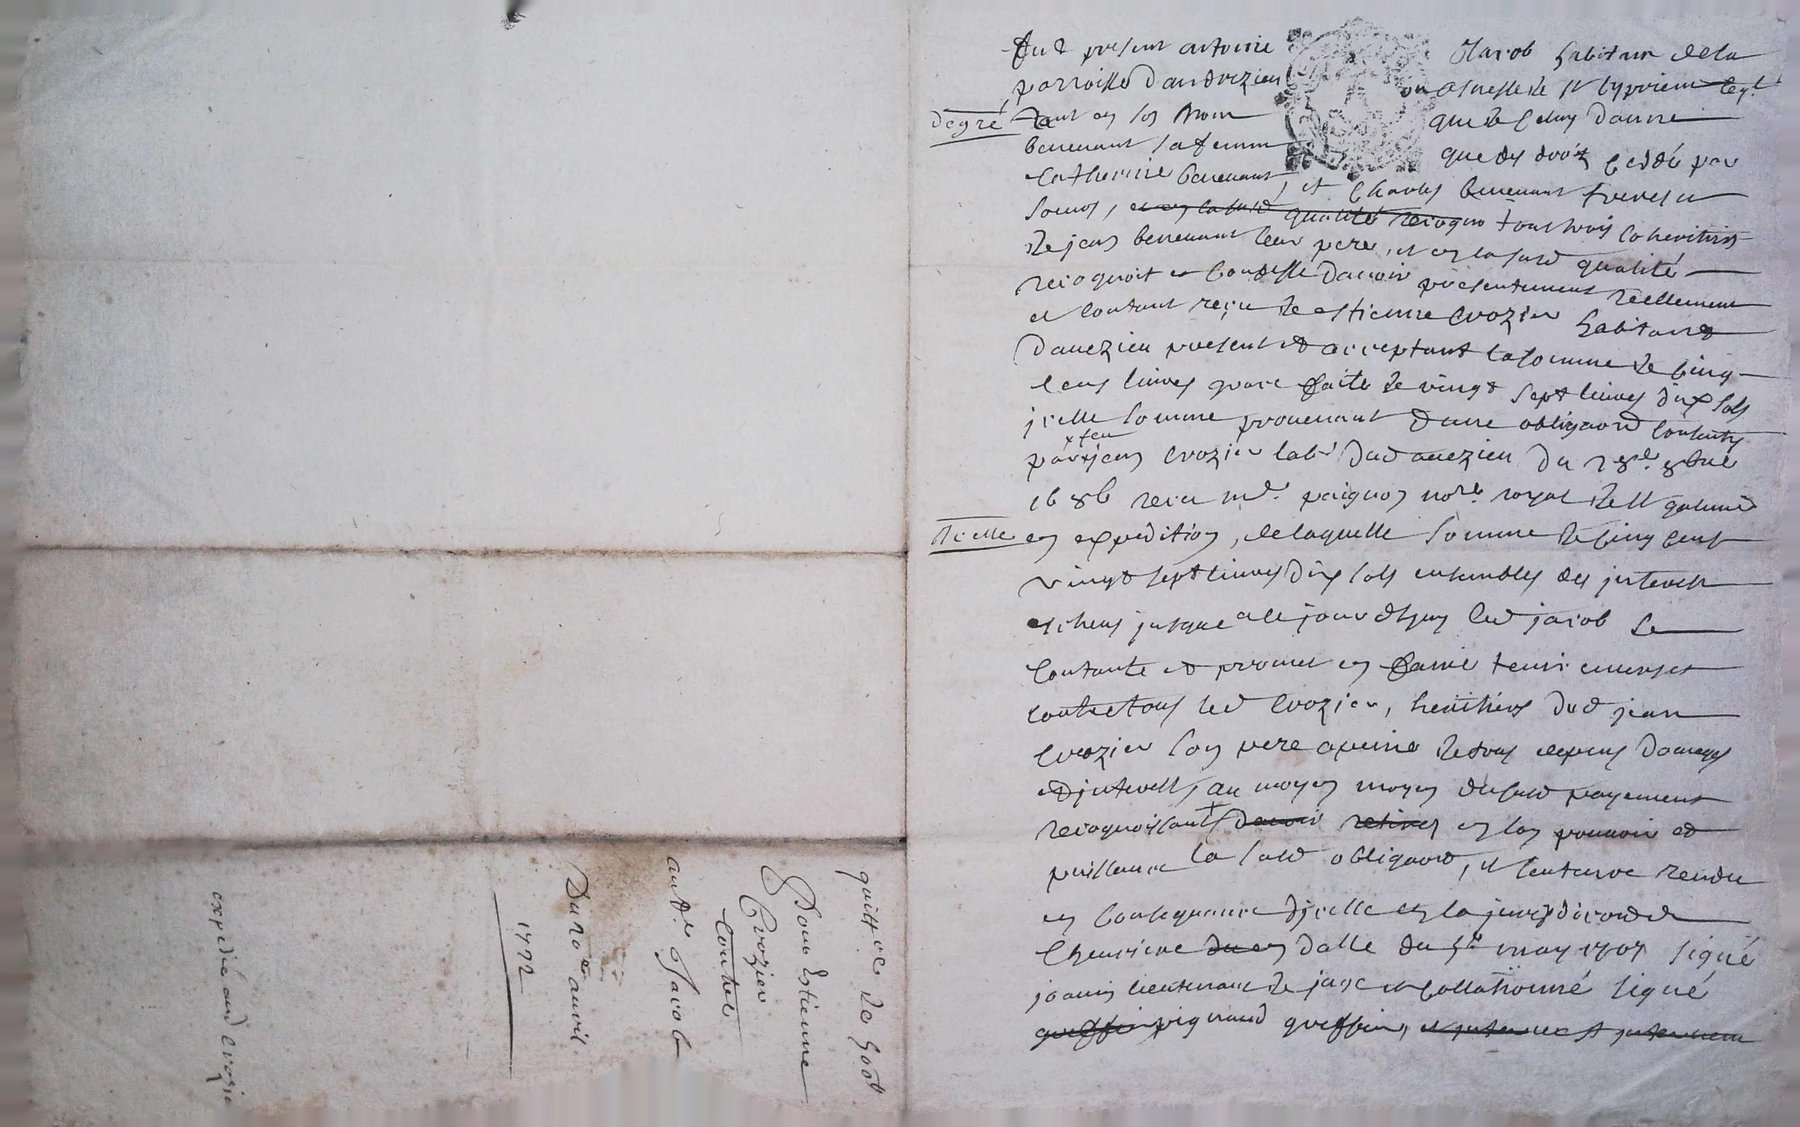 fut present antoine Jacob habitant de la
parroisse dandrezieu
degré tant en son nom que de celuy danne
benevant sa femme que des droit ceddé par
catherine benevant, et Charles benevant frere et
soeurs, et en lasusd qualité recognu tout trois coheritiers
de jean benevant leur pere, et en la susd qualité
recognoit et confesse davoir presentement reellement
et contant reçu de estienne crozier habitant
davezieu present et acceptant la somme de cinq
cens livres grace faite de vingt sept livres dix sols
jcelle somme provenant dune obligaon
par jean crozier labr dud avezieu du 28e 8bre
1686 receu me paignon nore royal de st galmier
dicelle en expedition, de laquelle somme de cinq cent
vingt sept livres dix sols ensembles des jnterest
escheus jusque a ce jourdhuy led jacob se
contante et promet en faire tenir
contre tous led crozier, heritiers dud jean
crozier son pere a peine de tous depens domages
et jnterest, au moyen moyen dususd payement
recognoissant davoir retirer en son pouvoir et
puissance la susd obligaon, et sentence rendu
en consequence djcelle en la jurisdicon de
cheurieres du en datte du may 1707 signé
lieutenant de juge et collationné signé
greffier pignaud greffier,
quittce de 500tt
Pour Estienne
Crozier
Contre
antne Jacob
Du 10e avril
1712
expedié aud crozier